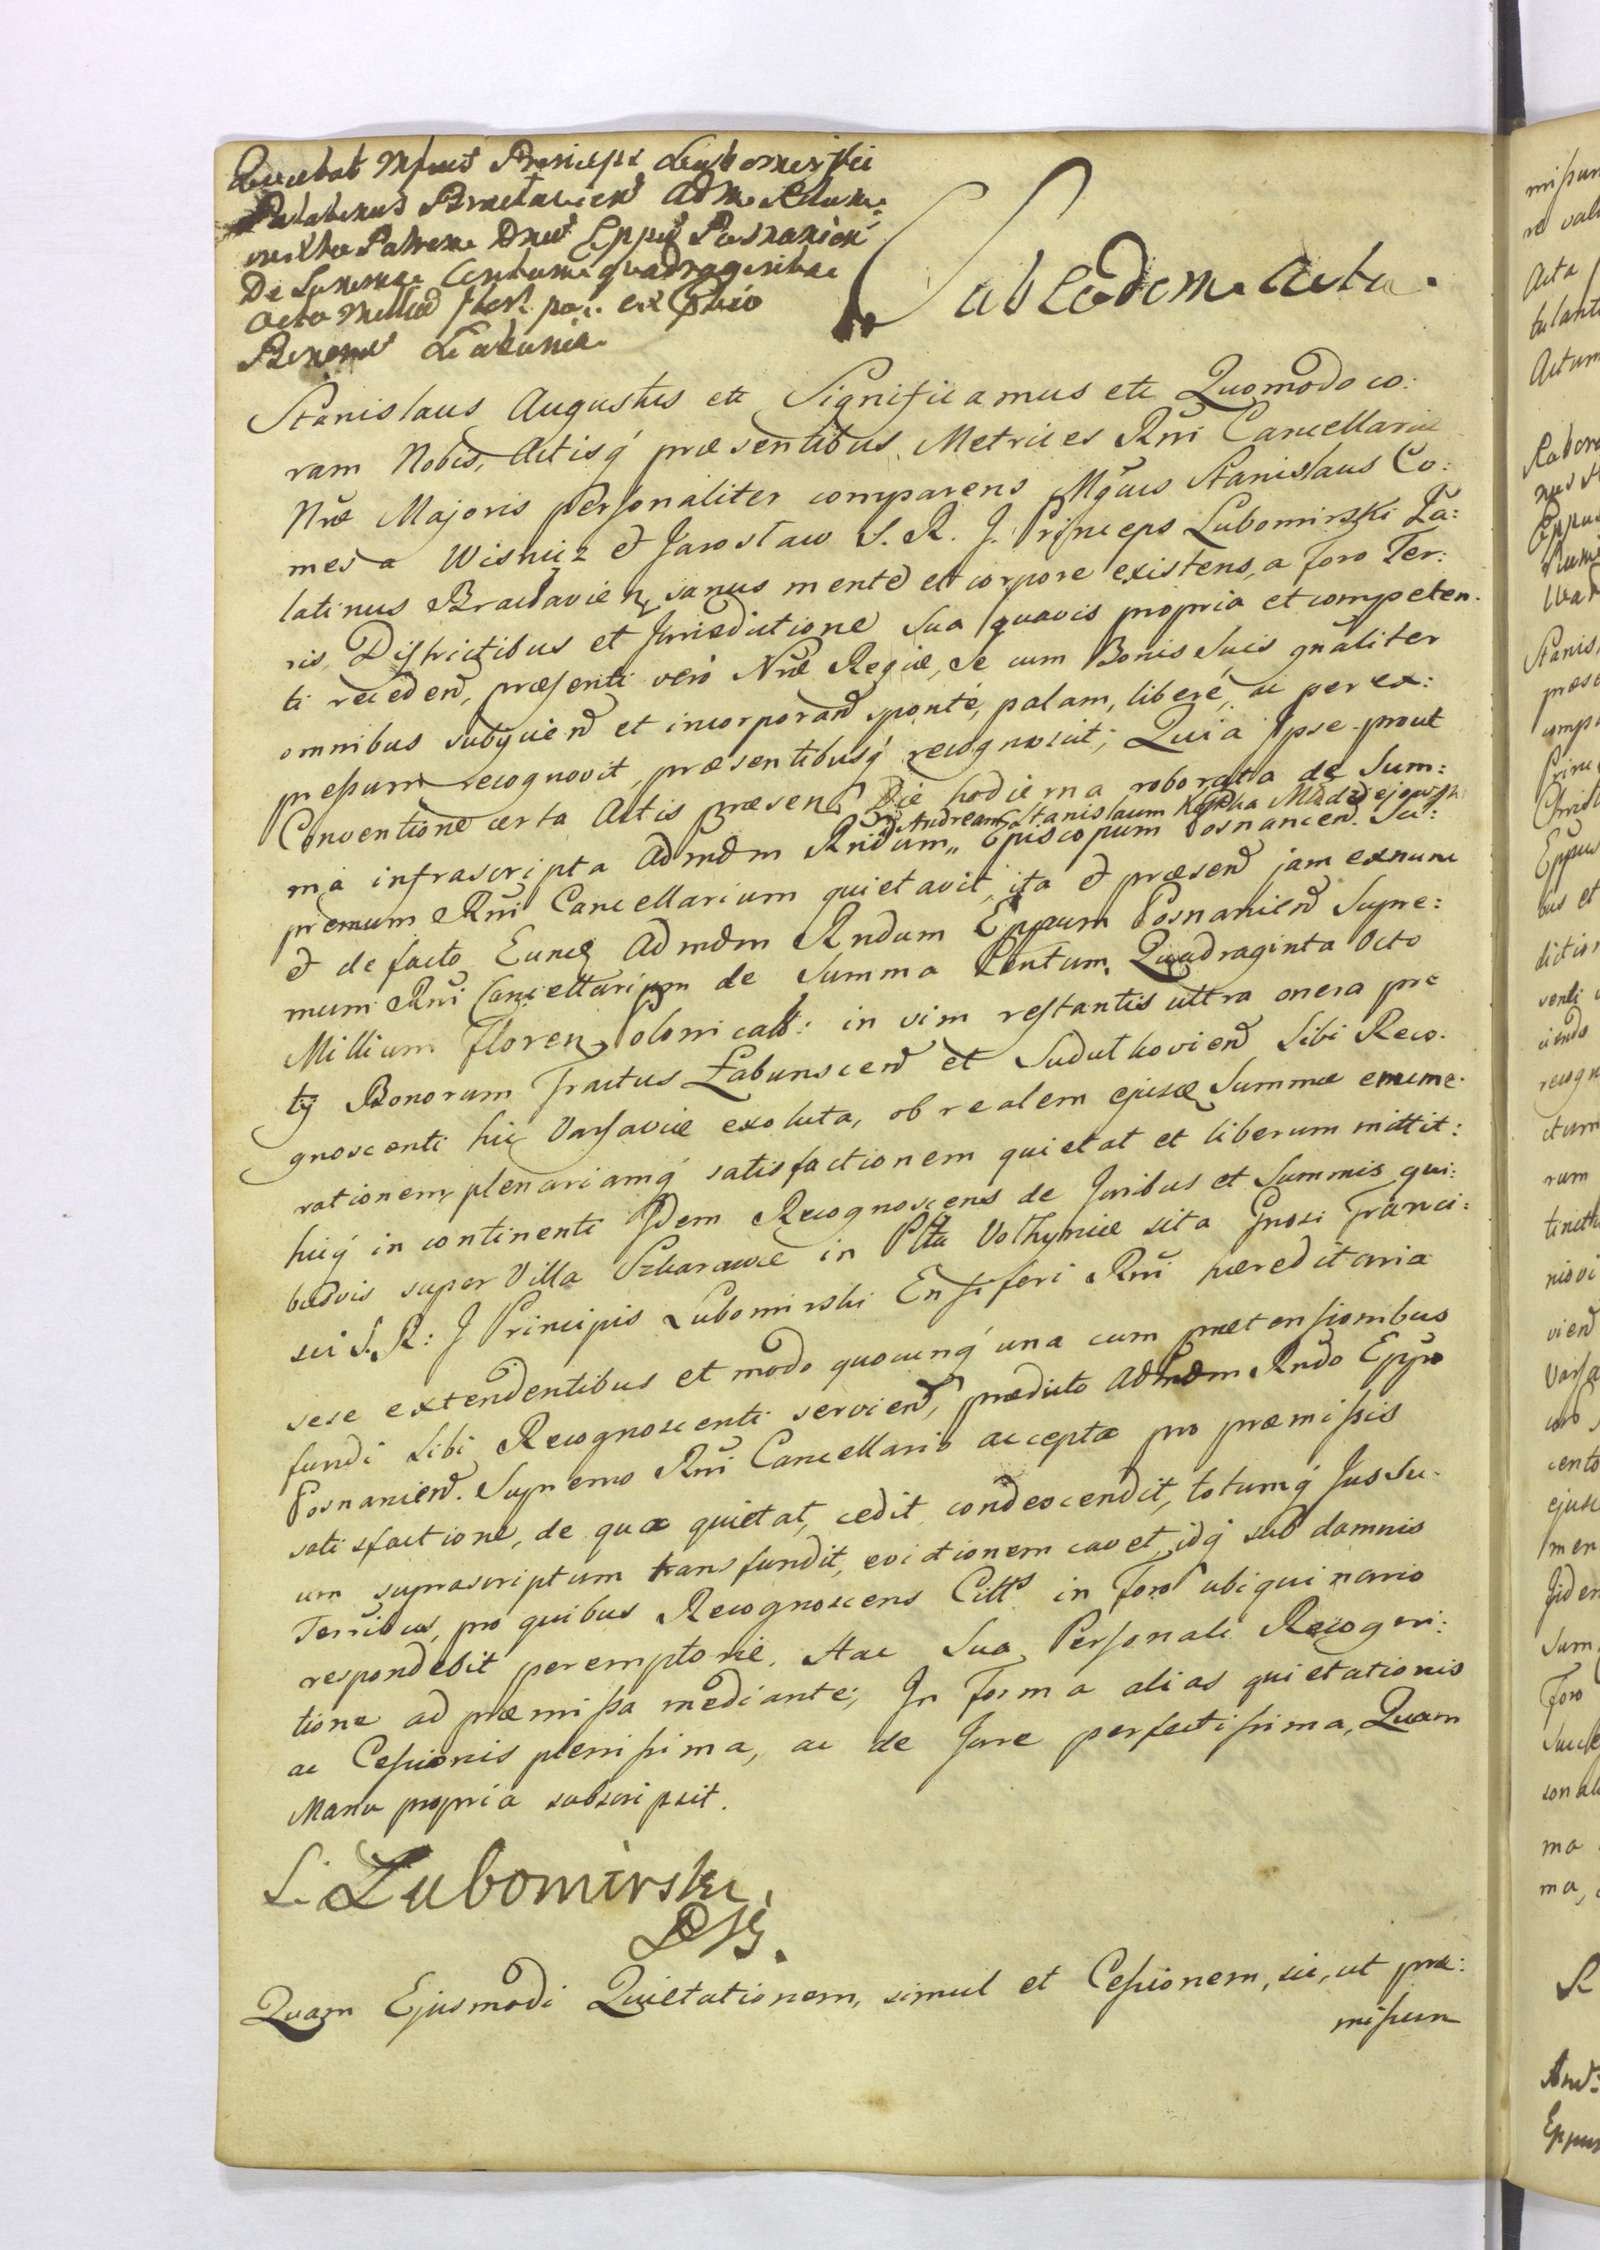 Quietat Mfcus Princeps Lubomirski
Palatinus Braclavien Adm Rdum
in Xto Patrem Dnum Eppum Posnanien
De Summa Centum quadraginta
octo Mille flor. pol. ex
Bonorum Łabunie
Sub Eadem Acta.
Stanislaus Augustus ett Significamus ett Quomodo co:
ram Nobis, Actisq́ præsentibus Metrices Rni Cancellariæ
Nræ Majoris personaliter comparens Mgcus Stanislaus Co:
mes a Wisnicz et Jaroslaw S. R. J. Princeps Lubomirski Pa:
latinus Braclavien, sanus mente et corpore existens, a foro Ter:
ris, Districtibus et Jurisdictione sua quavis propria et competen.
ti receden, præsenti vero Nræ Regiæ, se cum Bonis suis gnaliter
omnibus subjicien et incorporan sponte, palam, liberé, ac per ex:
pressum recognovit, præsentibusq́ recognoscit; Quia Ipse prout
Conventione certa Actis præsen Die hodierna roborata de Sum:
Andream Stanislaum Kostka Młodziejowski
ma infrascripta Admdm Rndum „ Episcopum Posnancien. Su:
premum Rni Cancellarium quietavit, ita et præsen jam exnunc
et de facto Eundem Admdm Rndum Eppum Posnanien Supre:
mum Rni Cancellarium de Summa Centum Quadraginta Octo
Millium floren, polonicall: in vim restantis ultra onera pre
tij Bonorum Tractus Łabunscen et Sudulkovien sibi Reco.
gnoscenti hic Varsaviæ exoluta, ob realem ejusd Summæ enume.
rationem, plenariamq́ satisfactionem quietat et liberum mittit:
hicq́ in continenti Idem Recognoscens de Juribus et Summis qui:
busvis super Villa Szkarawce in Pltu Volhyniæ sita Gnosi Franci:
sci S. R: J Principis Lubomirski Ensiferi Rni hæreditaria
sese extendentibus et modo quocunq́ una cum prætensionibus
fundi sibi Recognoscenti servien, prædicto Admdm Rndo Eppo
Posnanien. Supremo Rni Cancellario accepta pro præmissis
satisfactione, de qua quietat, cedit condescendit, totumq́ Jus Su.
um suprascriptum transfundit, evictionem cavet, idq́ sub damnis
Terribus, pro quibus Recognoscens Citts in foro ubiquinario
respondebit peremptorie. Hac Sua Personali Recogni:
tione ad præmissa mediante; In forma alias quietationis
ac Cessionis plenissima, ac de Jure perfectissima, Quam
Manu propria subscripsit.
S. Lubomirski,
Quam Ejusmodi Quietationem, simul et Cessionem, sic, ut præ:
missum